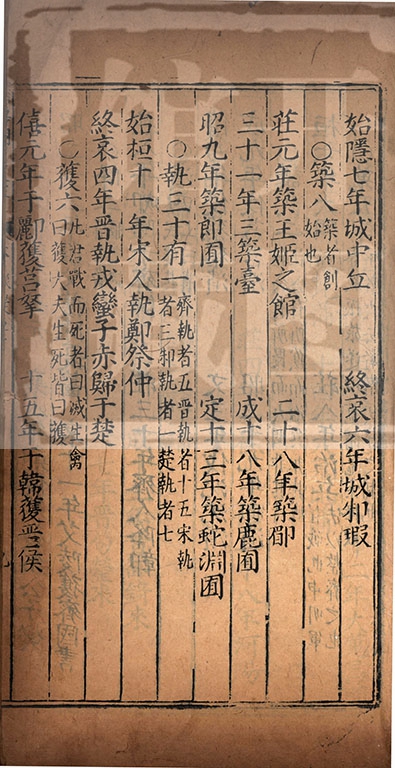 始隱七年城中丘　終哀六年城邾瑕
○築八築者創始也
莊元年築王姬之館　二十八年築郿
三十一年三築臺　成十八年築鹿囿
昭九年築郎囿　定十三年築蛇淵囿
○執三十有一齊執者五晉執者十五宋執者三邾執者一楚執者七
始桓十一年宋人執鄭祭仲
終哀四年晉執戎蠻子赤歸于楚
○獲六凡君戰而死者曰滅生禽曰獲大夫生死皆曰獲
僖元年于酈獲莒拏　十五年于韓獲晉侯